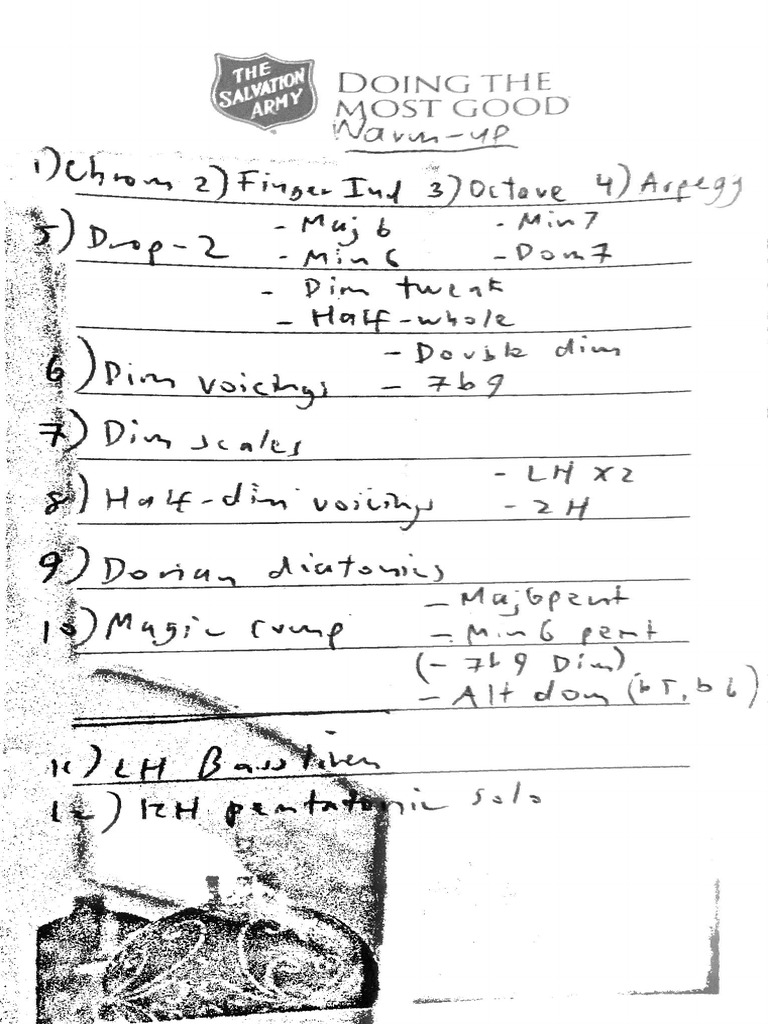 THE
SALVATION
ARMY
DOING THE
MOST GOOD
Warm-up
1) Chrom 2) Finger Ind 3) Octave 4) Arpegg
5) Drop-2 - Maj 6 - Min 7
- Min 6 - Dom 7
- Dim tweak
- Half-whole
6) Dim voicings - Double dim
- 7b9
7) Dim scales
8) Half-dim voicings - LH x2
- 2H
9) Dorian diatonics
10) Magic comp - Maj6 pent
- Min 6 pent
(- 7b9 Dim)
- Alt dom (b5, b6)
11) LH Bass lines
12) RH pentatonic solo